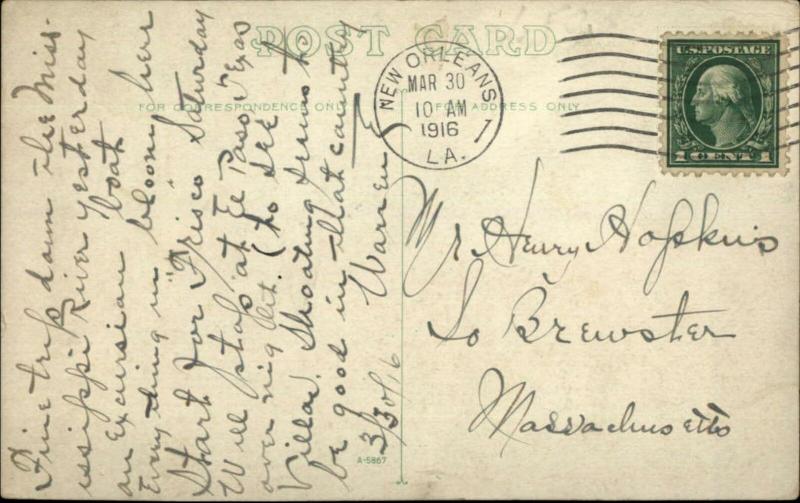 POST CARD
FOR CORRESPONDENCE ONLY
FOR ADDRESS ONLY
NEW ORLEANS
MAR 30
10 AM
1916
LA.
1
U.S. POSTAGE
1 CENT 1
Fine trip down the Miss-
issippi River yesterday
an Excursian boat
Everything in bloom here
Start for "Frisco Saturday
Will stop at El Paso Texas
over night. (to see
Villa). Shooting seems to
be good in that country
Warren
3/30/16
Mr Henry Hopkins
So Brewster
Massachusetts
A-5867